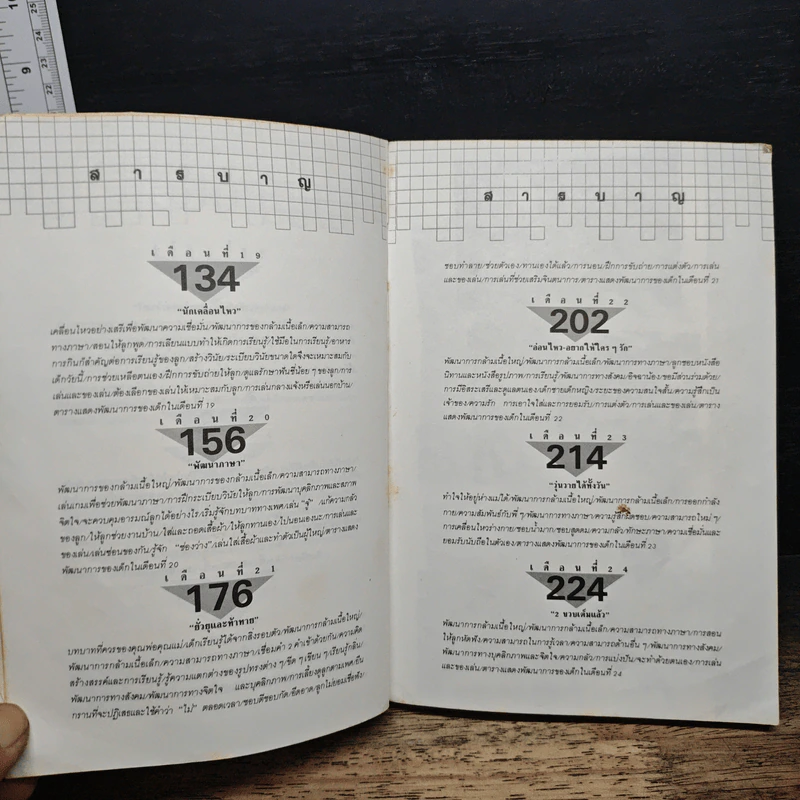 สารบาญ
เดือนที่ 19
134
"นักเคลื่อนไหว"
เคลื่อนไหวอย่างเสรีเพื่อพัฒนาความเชื่อมั่น/พัฒนาการของกล้ามเนื้อเล็ก/ความสามารถ
ทางภาษา/สอนให้ลูกพูด/การเลียนแบบทำให้เกิดการเรียนรู้/ใช้มือในการเรียนรู้/อาหาร
การกินก็สำคัญต่อการเรียนรู้ของลูก/สร้างวินัย/ระเบียบวินัยขนาดใดจึงจะเหมาะสมกับ
เด็กวัยนี้/การช่วยเหลือตนเอง/ฝึกการขับถ่ายให้ลูก/ดูแลรักษาฟันซี่น้อย ๆ ของลูก/การ
เล่นและของเล่น/ต้องเลือกของเล่นให้เหมาะสมกับลูก/การเล่นกลางแจ้งหรือเล่นนอกบ้าน/
ตารางแสดงพัฒนาการของเด็กในเดือนที่ 19
เดือนที่ 20
156
"พัฒนาภาษา"
พัฒนาการของกล้ามเนื้อใหญ่/พัฒนาการของกล้ามเนื้อเล็ก/ความสามารถทางภาษา/
เล่นเกมเพื่อช่วยพัฒนาภาษา/การฝึกระเบียบวินัยให้ลูก/การพัฒนาบุคลิกภาพและสภาพ
จิตใจ/จะควบคุมอารมณ์ลูกได้อย่างไร/เริ่มรู้จักบทบาททางเพศ/เล่น "จู๋" /แก้ความกลัว
ของลูก/ให้ลูกช่วยงานบ้าน/ใส่และถอดเสื้อผ้า/ให้ลูกทานเอง/ไปนอนเองนะ/การเล่นและ
ของเล่น/เล่นซ่อนของกัน/รู้จัก "ช่องว่าง"/เล่นใส่เสื้อผ้าและทำตัวเป็นผู้ใหญ่/ตารางแสดง
พัฒนาการของเด็กในเดือนที่ 20
เดือนที่ 21
176
"ยั่วยุและท้าทาย"
บทบาทที่ควรของคุณพ่อคุณแม่/เด็กเรียนรู้ได้จากสิ่งรอบตัว/พัฒนาการกล้ามเนื้อใหญ่/
พัฒนาการกล้ามเนื้อเล็ก/ความสามารถทางภาษา/เชื่อมคำ 2 คำเข้าด้วยกัน/ความคิด
สร้างสรรค์และการเรียนรู้/รู้ความแตกต่างของรูปทรงต่าง ๆ/ขีด ๆ เขียน ๆ/เรียนรู้กลิ่น/
พัฒนาการทางสังคม/พัฒนาการทางจิตใจ และบุคลิกภาพ/การเลี้ยงดูลูกตามเพศ/ยืน
กรานที่จะปฏิเสธและใช้คำว่า "ไม่" ตลอดเวลา/ชอบตีชอบกัด/อึดอาด/ลูกไม่ยอมเชื่อฟัง/
สารบาญ
ชอบทำลาย/ช่วยตัวเอง/ทานเองได้แล้ว/การนอน/ฝึกการขับถ่าย/การแต่งตัว/การเล่น
และของเล่น/การเล่นที่ช่วยเสริมจินตนาการ/ตารางแสดงพัฒนาการของเด็กในเดือนที่ 21
เดือนที่ 22
202
"อ่อนไหว-อยากให้ใคร ๆ รัก"
พัฒนาการกล้ามเนื้อใหญ่/พัฒนาการกล้ามเนื้อเล็ก/พัฒนาการทางภาษา/ลูกชอบหนังสือ
นิทานและหนังสือรูปภาพ/การเรียนรู้/พัฒนาการทางสังคม/อิจฉาน้อง/ขอมีส่วนร่วมด้วย/
การมีอิสระเสรีและดูแลตนเอง/เด็กชายเด็กหญิง/ระยะของความสนใจสั้น/ความรู้สึกเป็น
เจ้าของ/ความรัก การเอาใจใส่และการยอมรับ/การแต่งตัว/การเล่นและของเล่น/ตาราง
แสดงพัฒนาการของเด็กในเดือนที่ 22
เดือนที่ 23
214
"วุ่นวายได้ทั้งวัน"
ทำใจให้อยู่ห่างแม่ได้/พัฒนาการกล้ามเนื้อใหญ่/พัฒนาการกล้ามเนื้อเล็ก/การออกกำลัง
กาย/ความสัมพันธ์กับพี่ ๆ/พัฒนาการทางภาษา/ความรู้สึกผิดชอบ/ความสามารถใหม่ ๆ/
การเคลื่อนไหวร่างกาย/ชอบน้ำมาก/ชอบสุดดม/ความกลัว/ทักษะภาษา/ความเชื่อมั่นและ
ยอมรับนับถือในตัวเอง/ตารางแสดงพัฒนาการของเด็กในเดือนที่ 23
เดือนที่ 24
224
"2 ขวบเต็มแล้ว"
พัฒนาการกล้ามเนื้อใหญ่/พัฒนาการกล้ามเนื้อเล็ก/ความสามารถทางภาษา/การสอน
ให้ลูกหัดฟัง/ความสามารถในการรู้เวลา/ความสามารถด้านอื่น ๆ/พัฒนาการทางสังคม/
พัฒนาการทางบุคลิกภาพและจิตใจ/ความกลัว/การแบ่งปัน/จะทำด้วยตนเอง/การเล่น
และของเล่น/ตารางแสดงพัฒนาการของเด็กในเดือนที่ 24